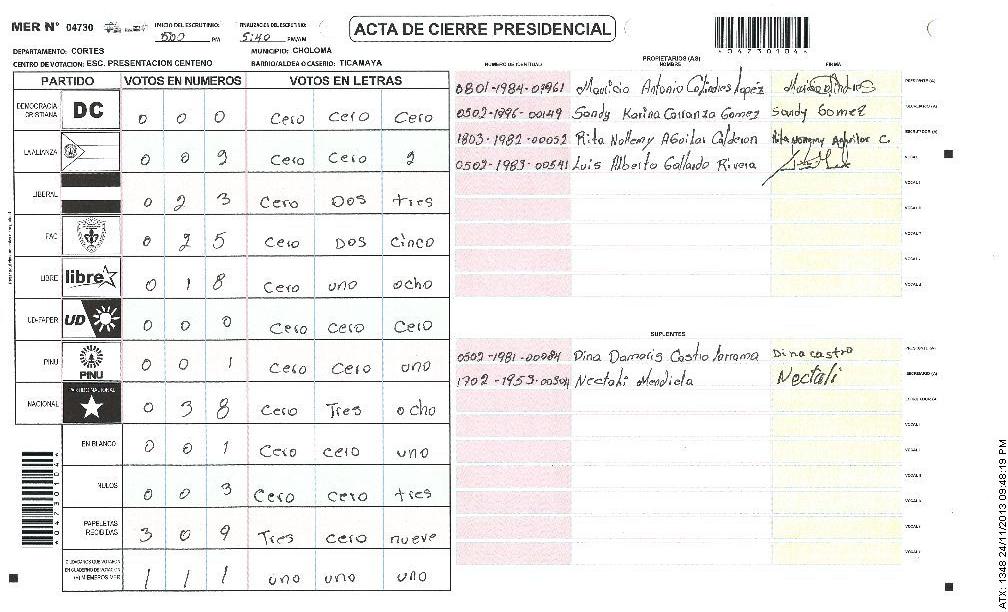 MER Nº 04730 INICIO DEL ESCRUTINIO: 5:00 PM FINALIZACION DEL ESCRUTINIO: 5:40 PM/AM
ACTA DE CIERRE PRESIDENCIAL
* 0 4 7 3 0 1 0 4 *
DEPARTAMENTO: CORTES MUNICIPIO: CHOLOMA
CENTRO DE VOTACION: ESC. PRESENTACION CENTENO BARRIO/ALDEA O CASERIO: TICAMAYA
PARTIDO VOTOS EN NUMEROS VOTOS EN LETRAS
DEMOCRACIA CRISTIANA DC 0 0 0 Cero Cero Cero
LA ALIANZA 0 0 2 Cero Cero 2
LIBERAL 0 2 3 Cero Dos tres
FAC 0 2 5 Cero Dos cinco
LIBRE libre 0 1 8 Cero uno ocho
UD-FAPER UD 0 0 0 Cero Cero Cero
PINU PINU 0 0 1 Cero Cero uno
NACIONAL PARTIDO NACIONAL 0 3 8 Cero Tres ocho
EN BLANCO 0 0 1 Cero cero uno
NULOS 0 0 3 Cero cero tres
PAPELETAS RECIBIDAS 3 0 9 Tres cero nueve
CIUDADANOS QUE VOTARON EN CUADERNO DE VOTACION (+) MIEMBROS MER 1 1 1 uno uno uno
PROPIETARIOS (AS)
NUMERO DE IDENTIDAD NOMBRE FIRMA
0801-1984-07961 Mauricio Antonio Colindres Lopez PRESIDENTE (A)
0502-1996-00149 Sandy Karina Carranza Gomez Sandy Gomez
1803-1982-00052 Rita Nohemy Aguilar Calderon Rita Nohemy Aguilar C. ESCRUTADOR (A)
0502-1983-00541 Luis Alberto Gallardo Rivera
SUPLENTES
0502-1981-00084 Dina Damaris Castro Dina castro PRESIDENTE (A)
1702-1953-00304 Nectali Mendieta Nectali SECRETARIO (A)
ATX: 1348 24/11/2013 09:48:19 PM